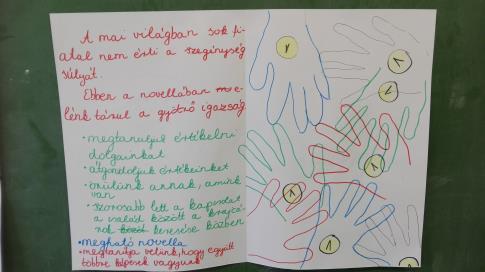 A mai világban sok fi-
atal nem érti a szegénység
súlyát.
Ebben a novellában
elénk tárul a gyötrő igazság
• megtanuljuk értékelni
dolgainkat
• átgondoljuk értékeinket
• örülünk annak, amink
van
• szorosabb lett a kapcsolat
a család között a krajcá-
rok keresése közben
• megható novella
• megtanítja velünk, hogy együtt
többre képesek vagyunk
1
1
1
1
1
1